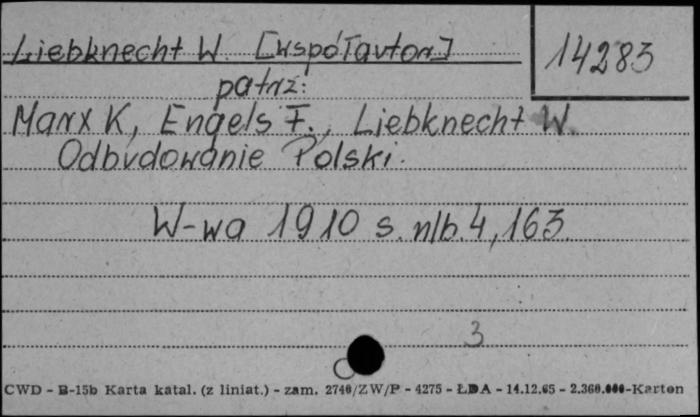 Liebknecht W. [współautor]
14283
patrz:
Marx K, Engels F., Liebknecht W.
Odbudowanie Polski.
W-wa 1910 s. nlb. 4, 163
3
CWD - B-15b Karta katal. (z liniat.) - zam. 2740/ZW/P - 4275 - ŁDA - 14.12.65 - 2.360.000-Karton